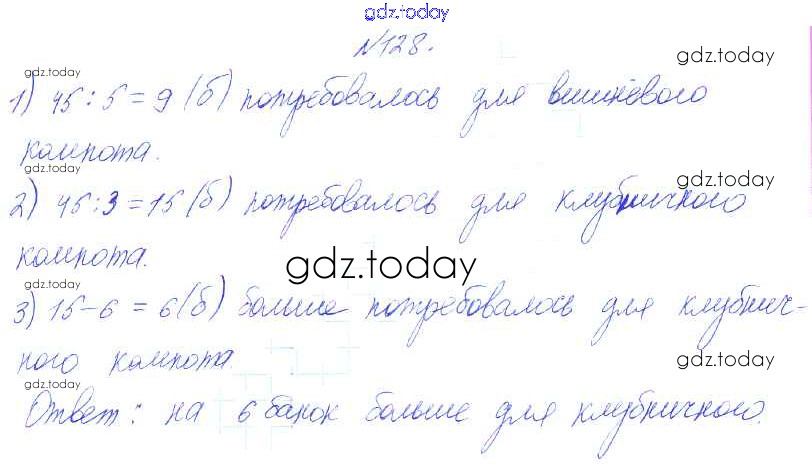 gdz.today
№128.
gdz.today
gdz.today
1) 45 : 5 = 9 (б) потребовалось для вишнёвого
компота.
gdz.today
gdz.today
2) 45 : 3 = 15 (б) потребовалось для клубничного
компота.
gdz.today
gdz.today
3) 15 - 6 = 6 (б) больше потребовалось для клубнич-
ного компота.
gdz.today
gdz.today
Ответ: на 6 банок больше для клубничного.